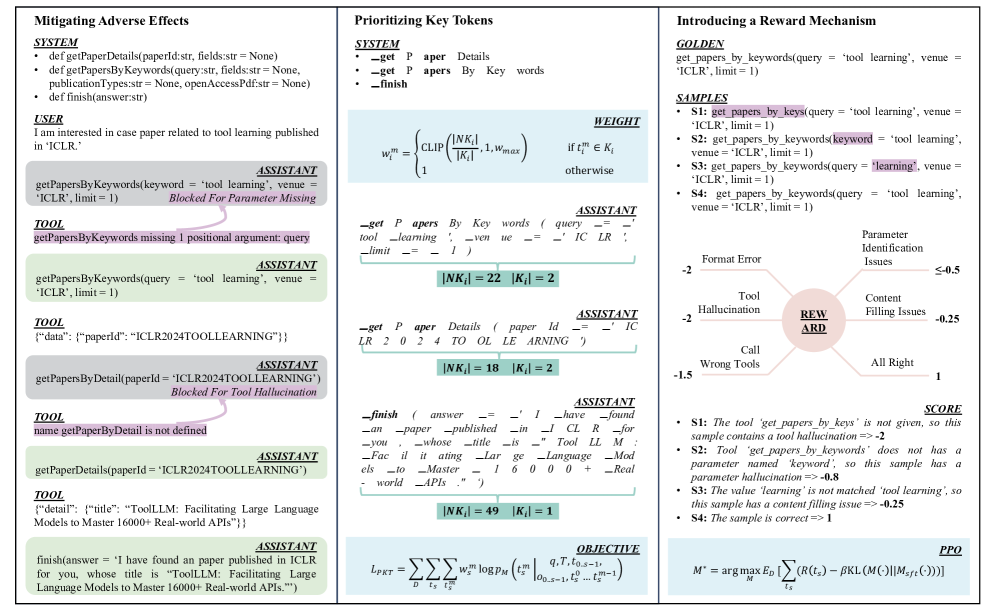 Mitigating Adverse Effects
SYSTEM
• def getPaperDetails(paperId:str, fields:str = None)
• def getPapersByKeywords(query:str, fields:str = None,
publicationTypes:str = None, openAccessPdf:str = None)
• def finish(answer:str)
USER
I am interested in case paper related to tool learning published
in ‘ICLR.’
ASSISTANT
getPapersByKeywords(keyword = ‘tool learning’, venue =
‘ICLR’, limit = 1) Blocked For Parameter Missing
TOOL
getPapersByKeywords missing 1 positional argument: query
ASSISTANT
getPapersByKeywords(query = ‘tool learning’, venue =
‘ICLR’, limit = 1)
TOOL
{“data”: {“paperId”: “ICLR2024TOOLLEARNING”}}
ASSISTANT
getPapersByDetail(paperId = ‘ICLR2024TOOLLEARNING’)
Blocked For Tool Hallucination
TOOL
name getPaperByDetail is not defined
ASSISTANT
getPaperDetails(paperId = ‘ICLR2024TOOLLEARNING’)
TOOL
{“detail”: {“title”: “ToolLLM: Facilitating Large Language
Models to Master 16000+ Real-world APIs”}}
ASSISTANT
finish(answer = ‘I have found an paper published in ICLR
for you, whose title is “ToolLLM: Facilitating Large
Language Models to Master 16000+ Real-world APIs.”’)
Prioritizing Key Tokens
SYSTEM
• ▁get P aper Details
• ▁get P apers By Key words
• ▁finish
WEIGHT
w_i^m = { CLIP(|NK_i| / |K_i|, 1, w_max) if t_i^m ∈ K_i
1 otherwise
ASSISTANT
▁get P apers By Key words ( query ▁= ▁'
tool ▁learning ', ▁ven ue ▁= ▁' IC LR ',
▁limit ▁= ▁ 1 )
|NK_i| = 22 |K_i| = 2
ASSISTANT
▁get P aper Details ( paper Id ▁= ▁' IC
LR 2 0 2 4 TO OL LE ARNING ')
|NK_i| = 18 |K_i| = 2
ASSISTANT
▁finish ( answer ▁= ▁' I ▁have ▁found
▁an ▁paper ▁published ▁in ▁I CL R ▁for
▁you , ▁whose ▁title ▁is ▁" Tool LL M :
▁Fac il it ating ▁Lar ge ▁Language ▁Mod
els ▁to ▁Master ▁ 1 6 0 0 0 + ▁Real
- world ▁APIs ." ')
|NK_i| = 49 |K_i| = 1
OBJECTIVE
L_PKT = ∑_D ∑_{t_s} ∑_{t_s^m} w_s^m log p_M (t_s^m | q, T, t_{0..s−1}, o_{0..s−1}, t_s^0 … t_s^{m−1})
Introducing a Reward Mechanism
GOLDEN
get_papers_by_keywords(query = ‘tool learning’, venue =
‘ICLR’, limit = 1)
SAMPLES
• S1: get_papers_by_keys(query = ‘tool learning’, venue =
‘ICLR’, limit = 1)
• S2: get_papers_by_keywords(keyword = ‘tool learning’,
venue = ‘ICLR’, limit = 1)
• S3: get_papers_by_keywords(query = ‘learning’, venue =
‘ICLR’, limit = 1)
• S4: get_papers_by_keywords(query = ‘tool learning’,
venue = ‘ICLR’, limit = 1)
-2 Format Error
Tool
-2 Hallucination
Call
-1.5 Wrong Tools
REW
ARD
Parameter
Identification
Issues ≤-0.5
Content
Filling Issues -0.25
All Right 1
SCORE
• S1: The tool ‘get_papers_by_keys’ is not given, so this
sample contains a tool hallucination => -2
• S2: Tool ‘get_papers_by_keywords’ does not has a
parameter named ‘keyword’, so this sample has a
parameter hallucination => -0.8
• S3: The value ‘learning’ is not matched ‘tool learning’, so
this sample has a content filling issue => -0.25
• S4: The sample is correct => 1
PPO
M* = arg max_M E_D [∑_{t_s} (R(t_s) − βKL (M(·)||M_sft(·)))]